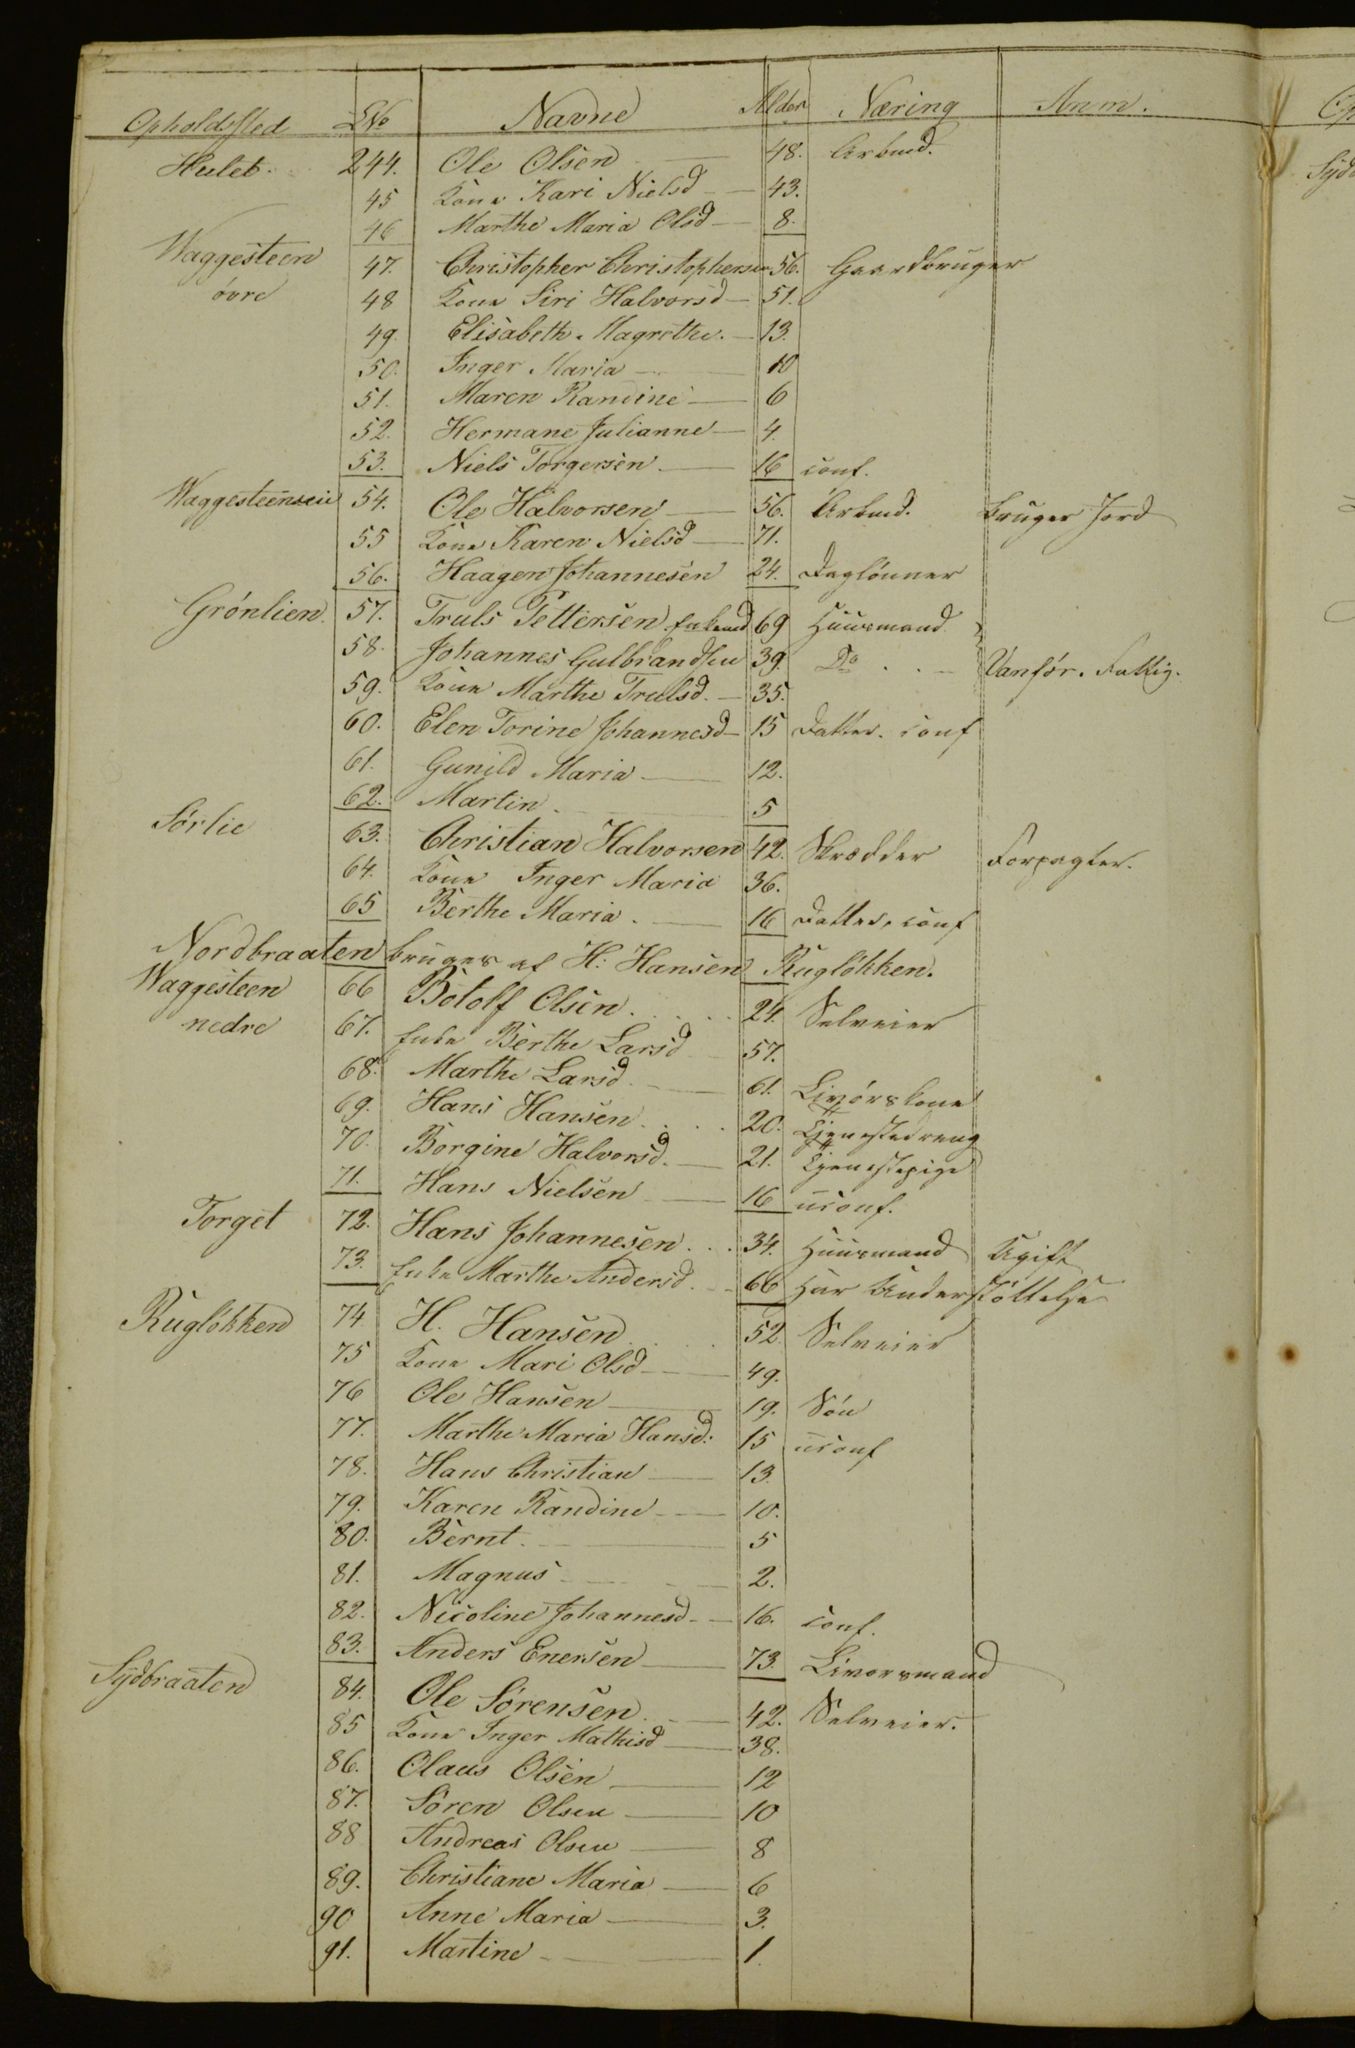 Opholdssted LNo Navne Alder Næring Anm.
Hulet. 244. Ole Olsen 48. Arbmd.
45 Kone Kari Nielsd 43.
46 Marthe Maria Olsd 8.
Waggesteen 47. Christopher Christophersen 56. Gaardbruger
övre 48 Kone Siri Halvorsd 51.
49. Elisabeth Magrethe. 13.
50. Inger Maria 10
51. Maren Randine 6
52. Hermane Julianne 4.
53. Niels Torgersen 16 conf.
Waggesteenseie 54. Ole Halvorsen 56. Arbmd. bruger Jord
55 Kone Karen Nielsd 71.
56. Haagen Johannesen 24. Daglönner
Grönlien. 57. Truls Pettersen Enkemd 69 Huusmand
58. Johannes Gulbrandsen 39. Do Vanför. Fattig.
59. Kone Marthe Trulsd. 35.
60. Elen Torine Johannesd 15 Datter. conf
61. Gunild Maria 12.
62. Martin 5
Sörlie 63. Christian Halvorsen 42. Skrædder Forpagter.
64. Kone Inger Maria 36.
65 Berthe Maria. 16 Datter, conf
Nordbraaten bruges af H: HansenRuglökken.
Waggesteen 66 Botolf Olsen 24. Selveier
nedre 67. Enke Berthe Larsd 57.
68. Marthe Larsd. 61. Livörskone
69. Hans Hansen 20. Tjenestedreng
70. Borgine Halvorsd. 21. Tjenestepige
71. Hans Nielsen 16 uconf.
Torget 72. Hans Johannesen 34. Huusmand Ugift
73. Enke Marthe Andersd. 66 Har Understöttelse
Ruglökken 74 H. Hansen 52. Selveier
75 Kone Mari Olsd 49.
76 Ole Hansen 19. Sön
77. Marthe Maria Hansd: 15 uconf
78. Hans Christian 13.
79. Karen Randine 10.
80. Bernt. 5
81. Magnus 2.
82. Nicoline Johannesd 16. conf.
83. Anders Enersen 73. Livorsmand
Sydbraaten 84. Ole Sörensen 42. Selveier.
85 Kone Inger Mathisd 38.
86. Olaus Olsen 12
87. Sören Olsen 10
88 Andreas Olsen 8
89. Christiane Maria 6
90 Anne Maria 3.
91. Martine 1.